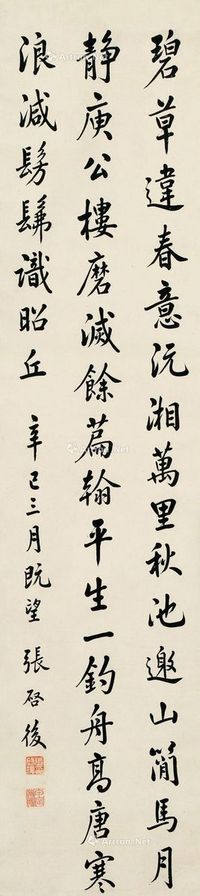 碧草違春意沅湘萬里秋池邀山簡馬月
靜庾公樓磨滅餘篇翰平生一釣舟高唐寒
浪減髣髴識昭丘
辛巳三月既望 張啓後